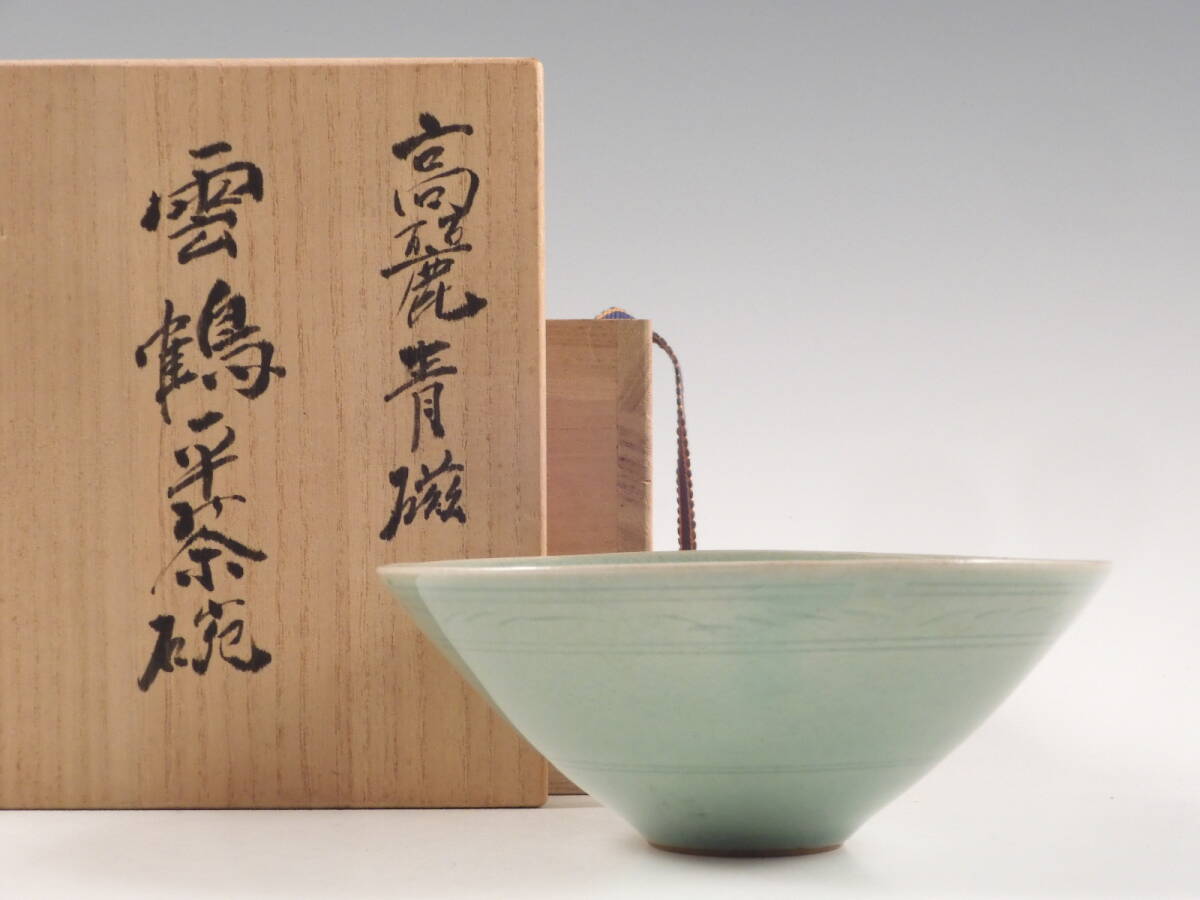 高麗青磁
雲鶴平茶碗